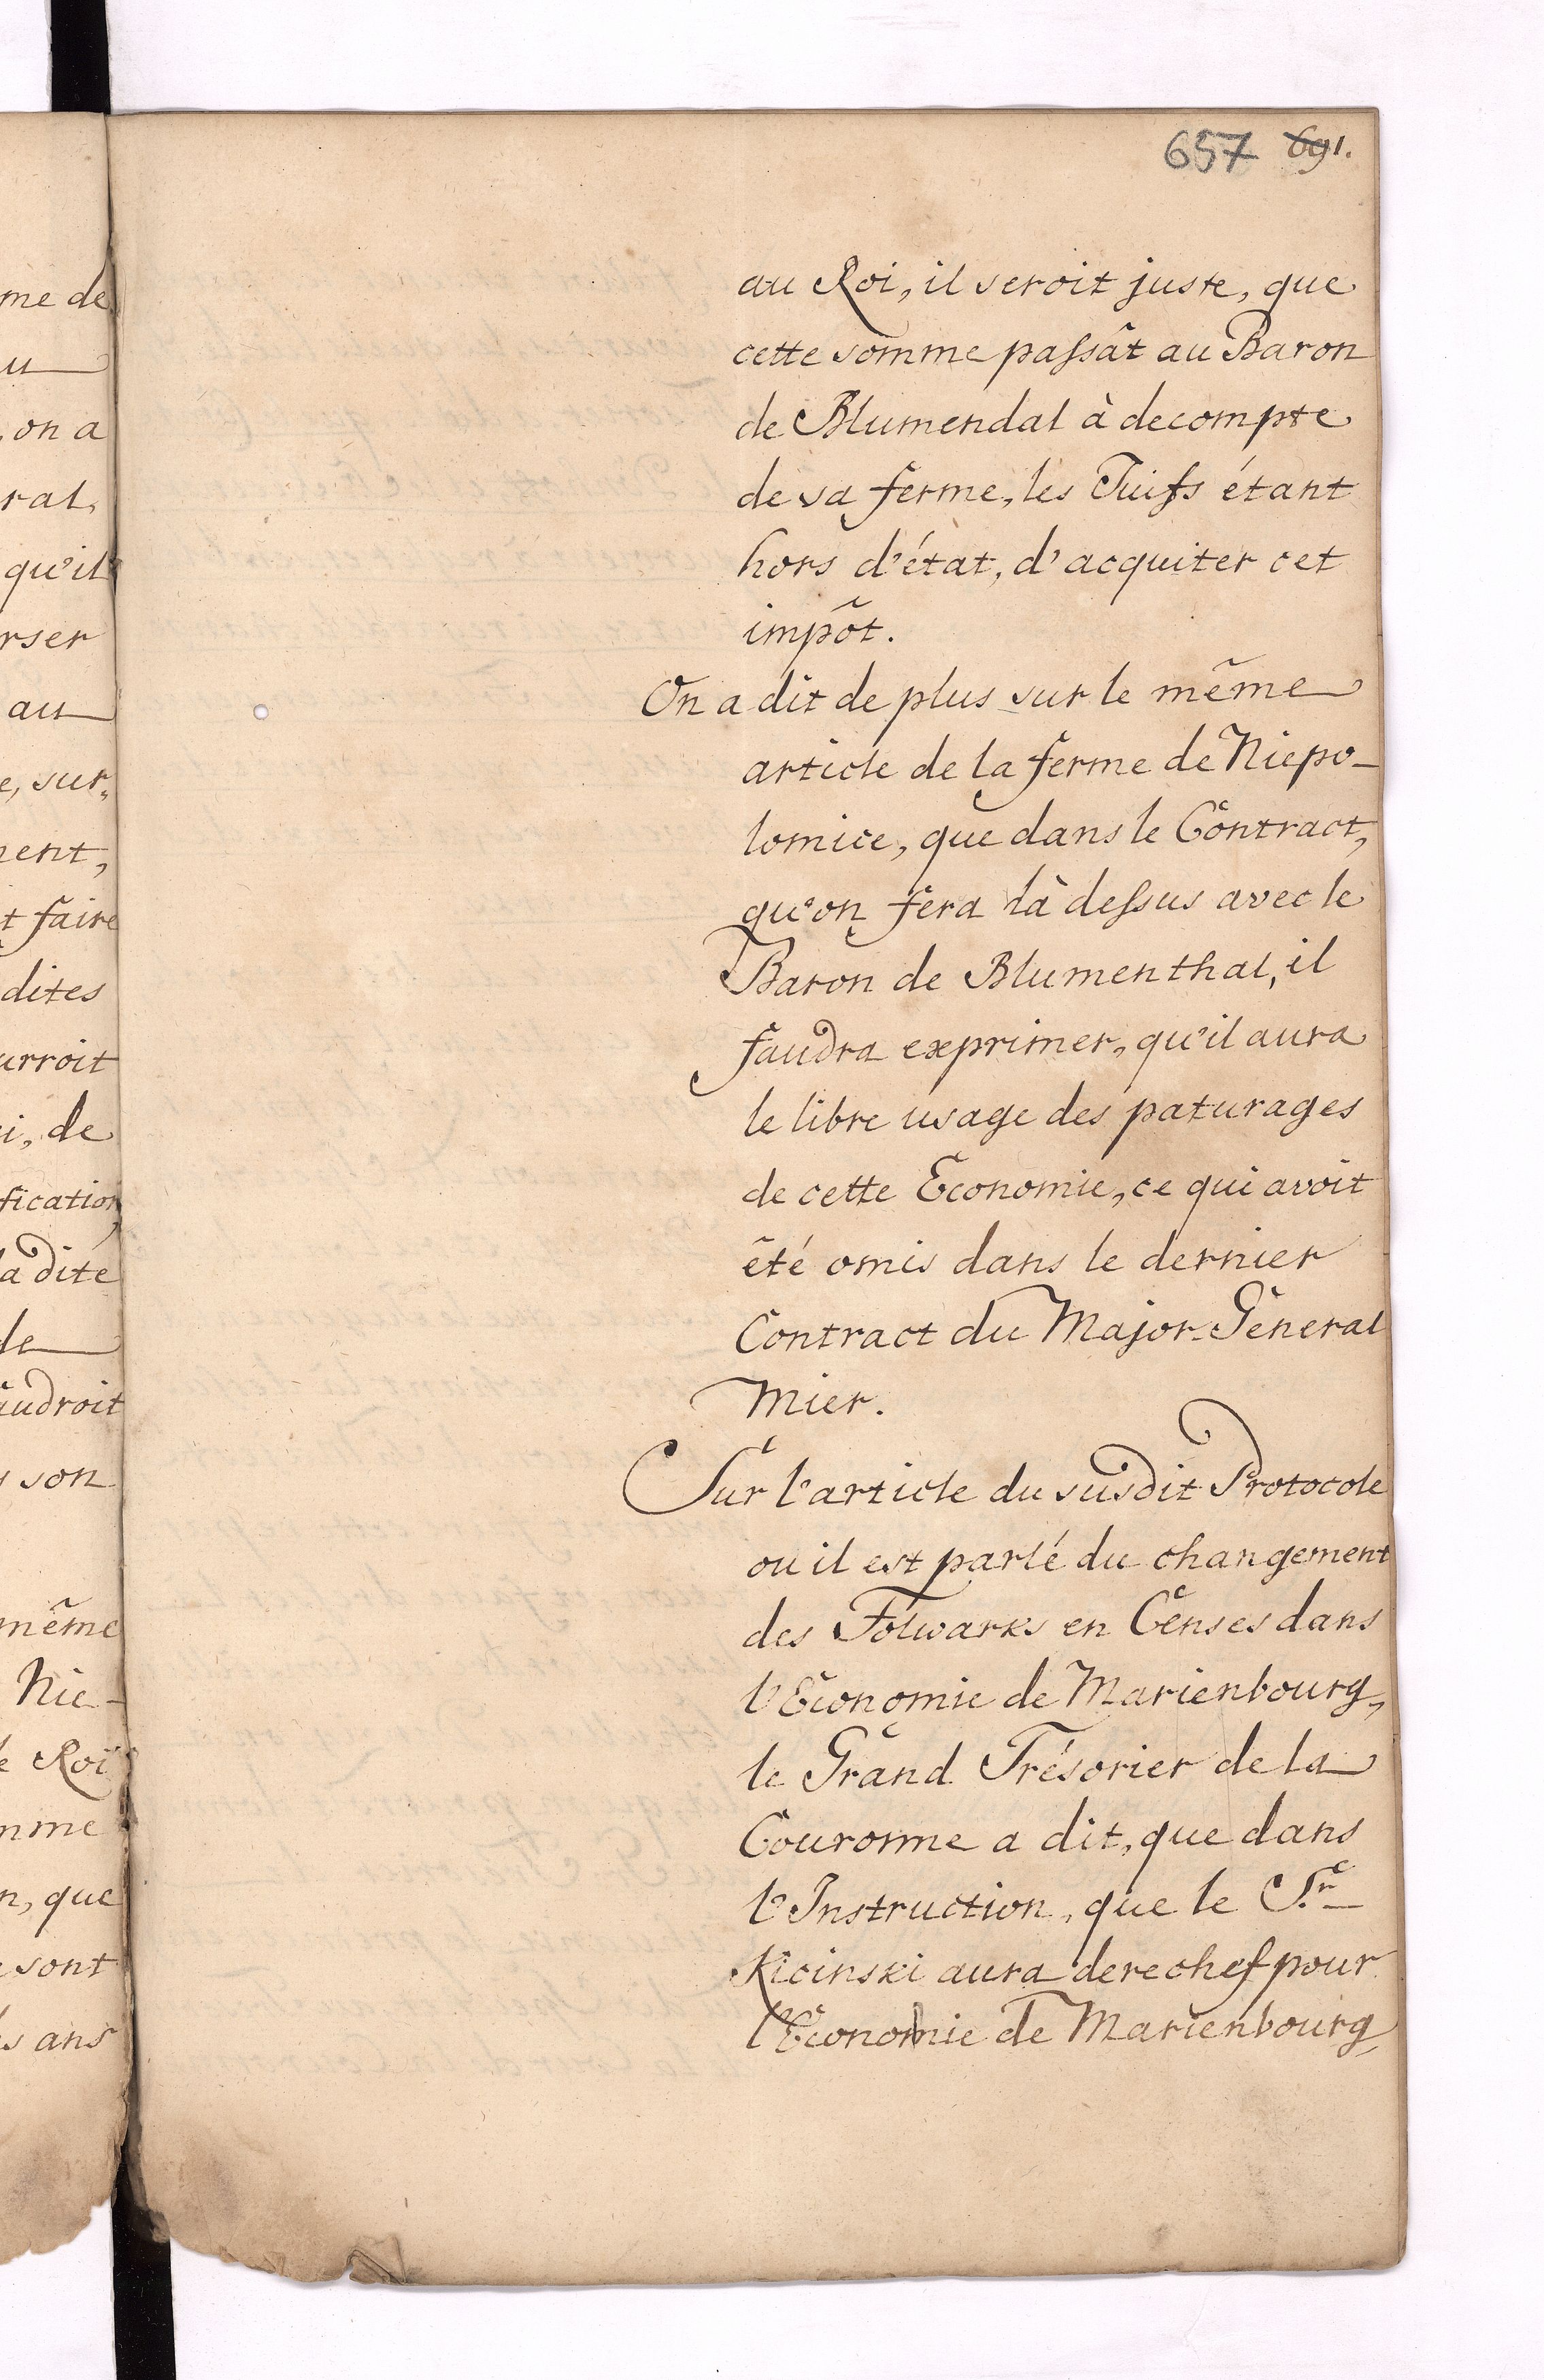 657 691.
au Roi, il seroit juste, que
cette somme passât au Baron
de Blumendal à decompte
de sa ferme, les Juifs étant
hors d'état, d'acquiter cet
impôt.
On a dit de plus sur le même
article de la ferme de Niepo-
lomice, que dans le Contract,
qu'on fera là dessus avec le
Baron de Blumenthal, il
faudra exprimer, qu'il aura
le libre usage des paturages
de cette Economie, ce qui avoit
été omis dans le dernier
Contract du Major-General
Mier.
Sur l'article du susdit Protocole
ou il est parlé du changement
des Folwarks en Censes dans
l'Economie de Marienbourg,
le Grand Trésorier de la
Couronne a dit, que dans
l'Instruction, que le Sr.
Kicinski aura derechef pour
l'Economie de Marienbourg,
me de
u
, on a
ral,
qu'il
rser
au
e, sur,
nent,
t faire
dites
urroit
i, de
fication,
la dite
de
audroit
s son
même
Nie-
e Roi
mme
n, que
sont
s ans